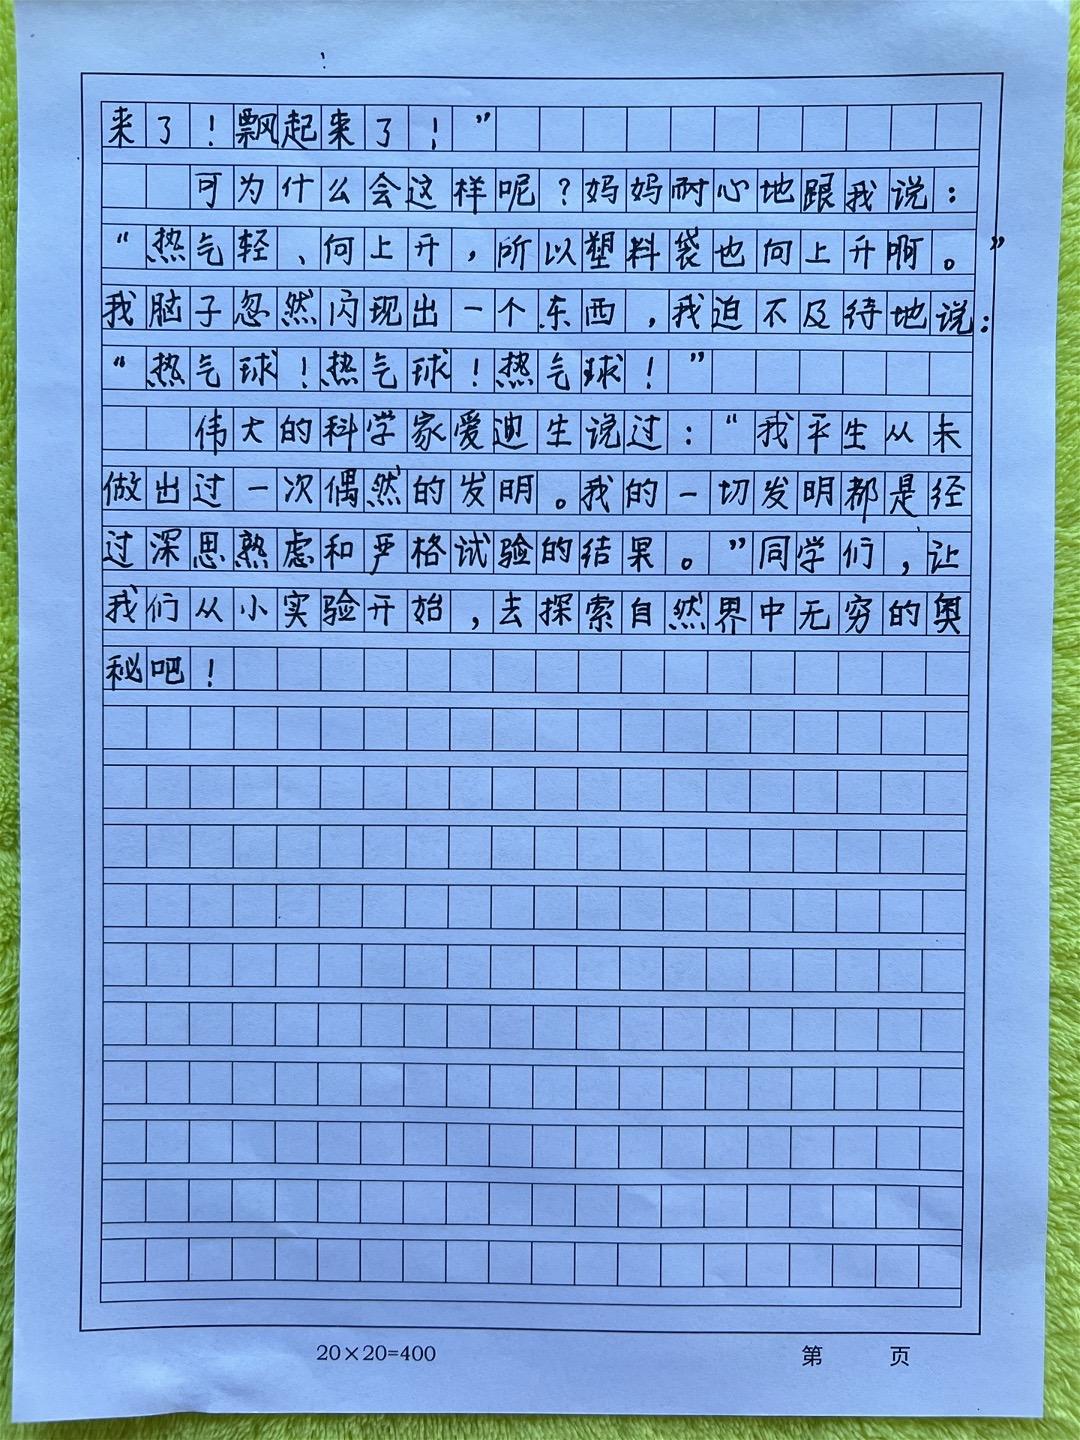 来了！飘起来了！”
可为什么会这样呢？妈妈耐心地跟我说：
“热气轻、向上升，所以塑料袋也向上升啊。”
我脑子忽然闪现出一个东西，我迫不及待地说：
“热气球！热气球！热气球！”
伟大的科学家爱迪生说过：“我平生从未
做出过一次偶然的发明。我的一切发明都是经
过深思熟虑和严格试验的结果。”同学们，让
我们从小实验开始，去探索自然界中无穷的奥
秘吧！
20×20=400 第 页